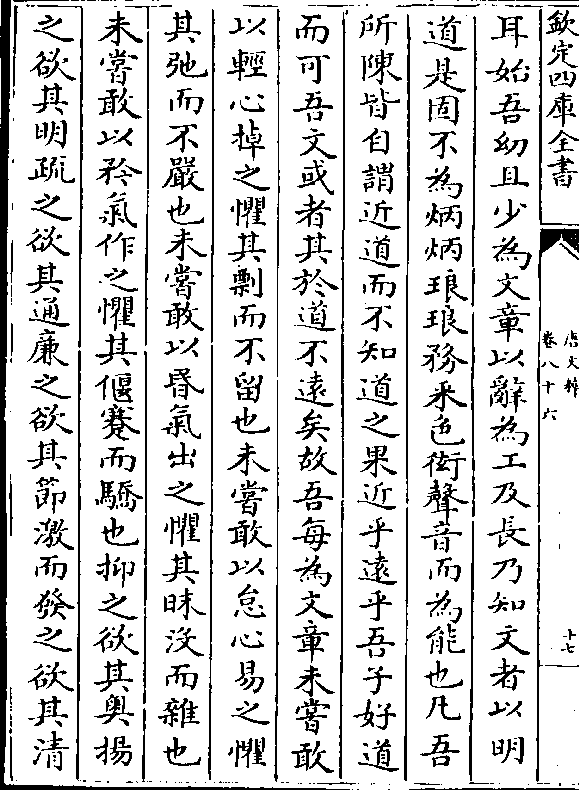 欽定四庫全書
唐文粹
卷八十六
十七
耳始吾幼且少為文章以辭為工及長乃知文者以明
道是固不為炳炳琅琅務釆色衒聲音而為能也凡吾
所陳皆自謂近道而不知道之果近乎遠乎吾子好道
而可吾文或者其於道不遠矣故吾每為文章未嘗敢
以輕心掉之懼其剽而不留也未嘗敢以怠心易之懼
其弛而不嚴也未嘗敢以昏氣出之懼其昧沒而雜也
未嘗敢以矜氣作之懼其偃蹇而驕也抑之欲其奧揚
之欲其明疏之欲其通廉之欲其節激而發之欲其清